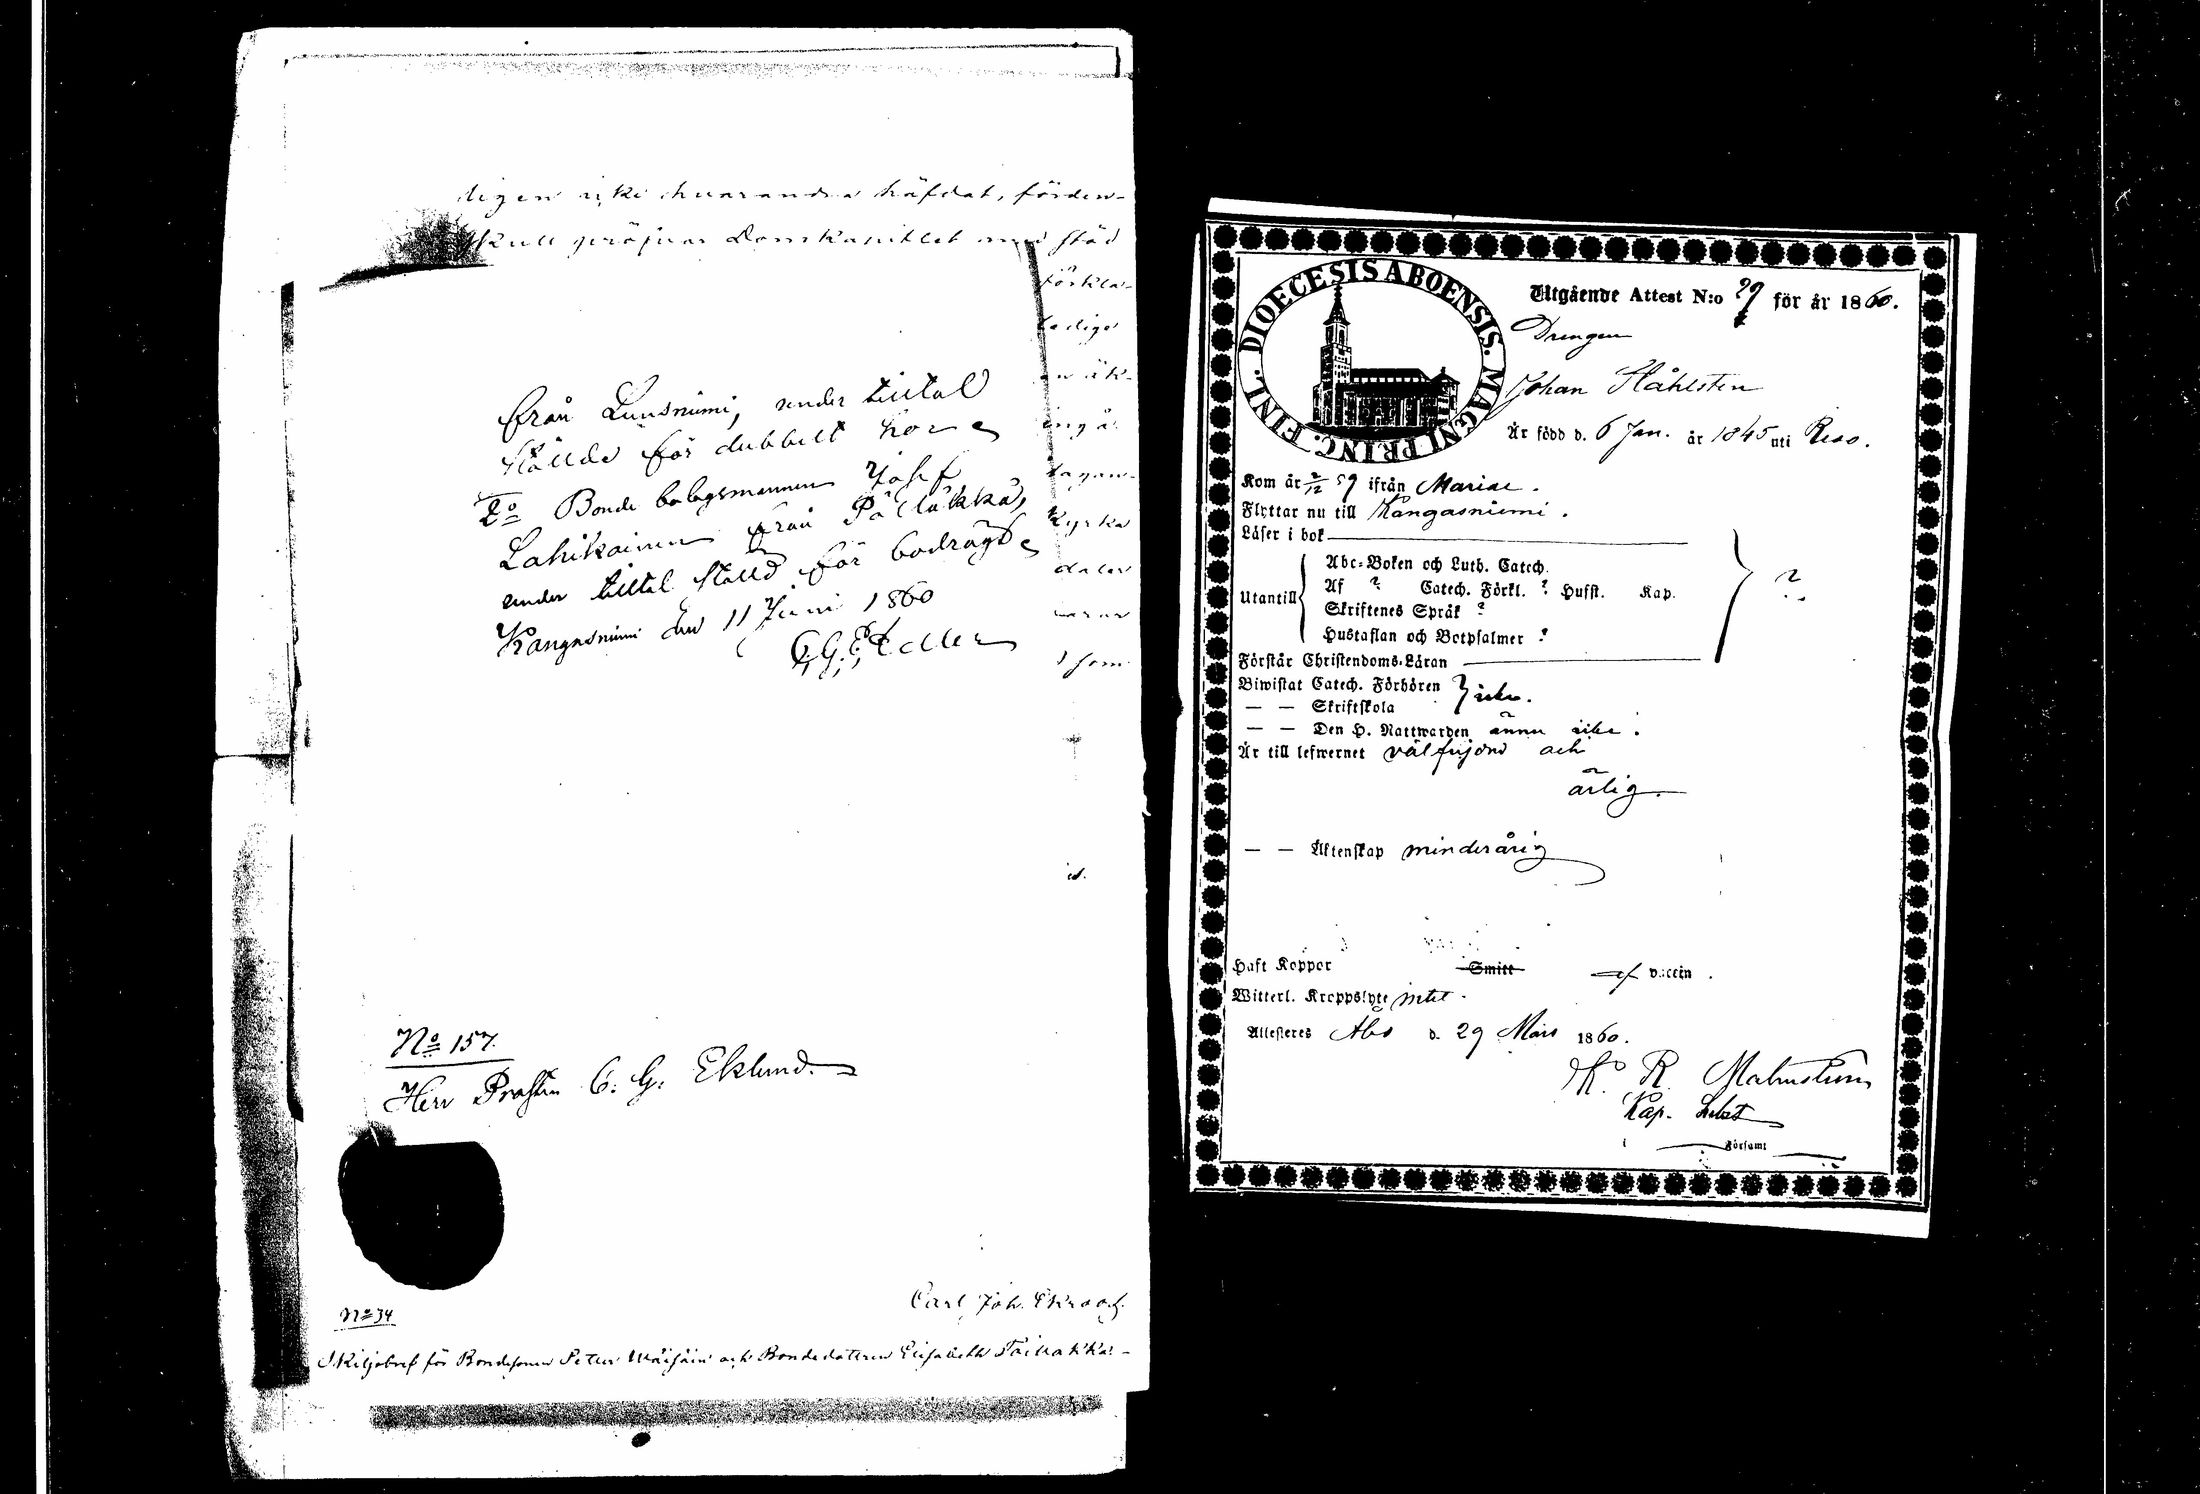 digen icke hvarandra häfdat, förden-
skull pröfvar Domkapitlet med stöd
förkla-
ledige
äk-
ingå
tagan-
Kyrko
som
från Luusniemi, under tilltal
stälde för dubbelt hor
2o Bonde bolagsmannen Josef
Lahikainen från Pälläkkä,
under tilltal ställd för bodrägt
Kangasniemi den 11 Juni 1860
No 157.
Herr Prosten C. G. Eklund.
Carl Joh.
No 34
Skiljobref för Bondesonen Petter Wäisäin och Bondedottren Elisabeth
DIOECESIS ABOENSIS. MAGNI PRINC. FINL.
Utgående Attest N:o 29 för år 1860.
Drengen
Johan Ståhlsten
Är född d. 6 Jan. år 1845 uti Reso.
Kom år 2/12 59 ifrån Mariae.
Flyttar nu till Kangasniemi.
Läser i bok
Utantill
Abc-Boken och Luth. Catech.
Af ? Catech. Förkl. ? Husst. Kap.
Skriftenes Språk ?
Hustaflan och Botpsalmer ?
?
Förstår Christendoms-Läran
Biwistat Catech. Förhören
— — Skriftskola
icke.
— — Den H. Nattwarden ännu icke.
Är till lefwernet välfrejdad och
ärlig.
— — Äktenskap minderårig
Haft Koppor Smitt af vaccin.
Witterl. Kroppslyte intet.
Attesteras Åbo d. 29 Mars 1860.
K. R. Malmström
Kap.
Församl